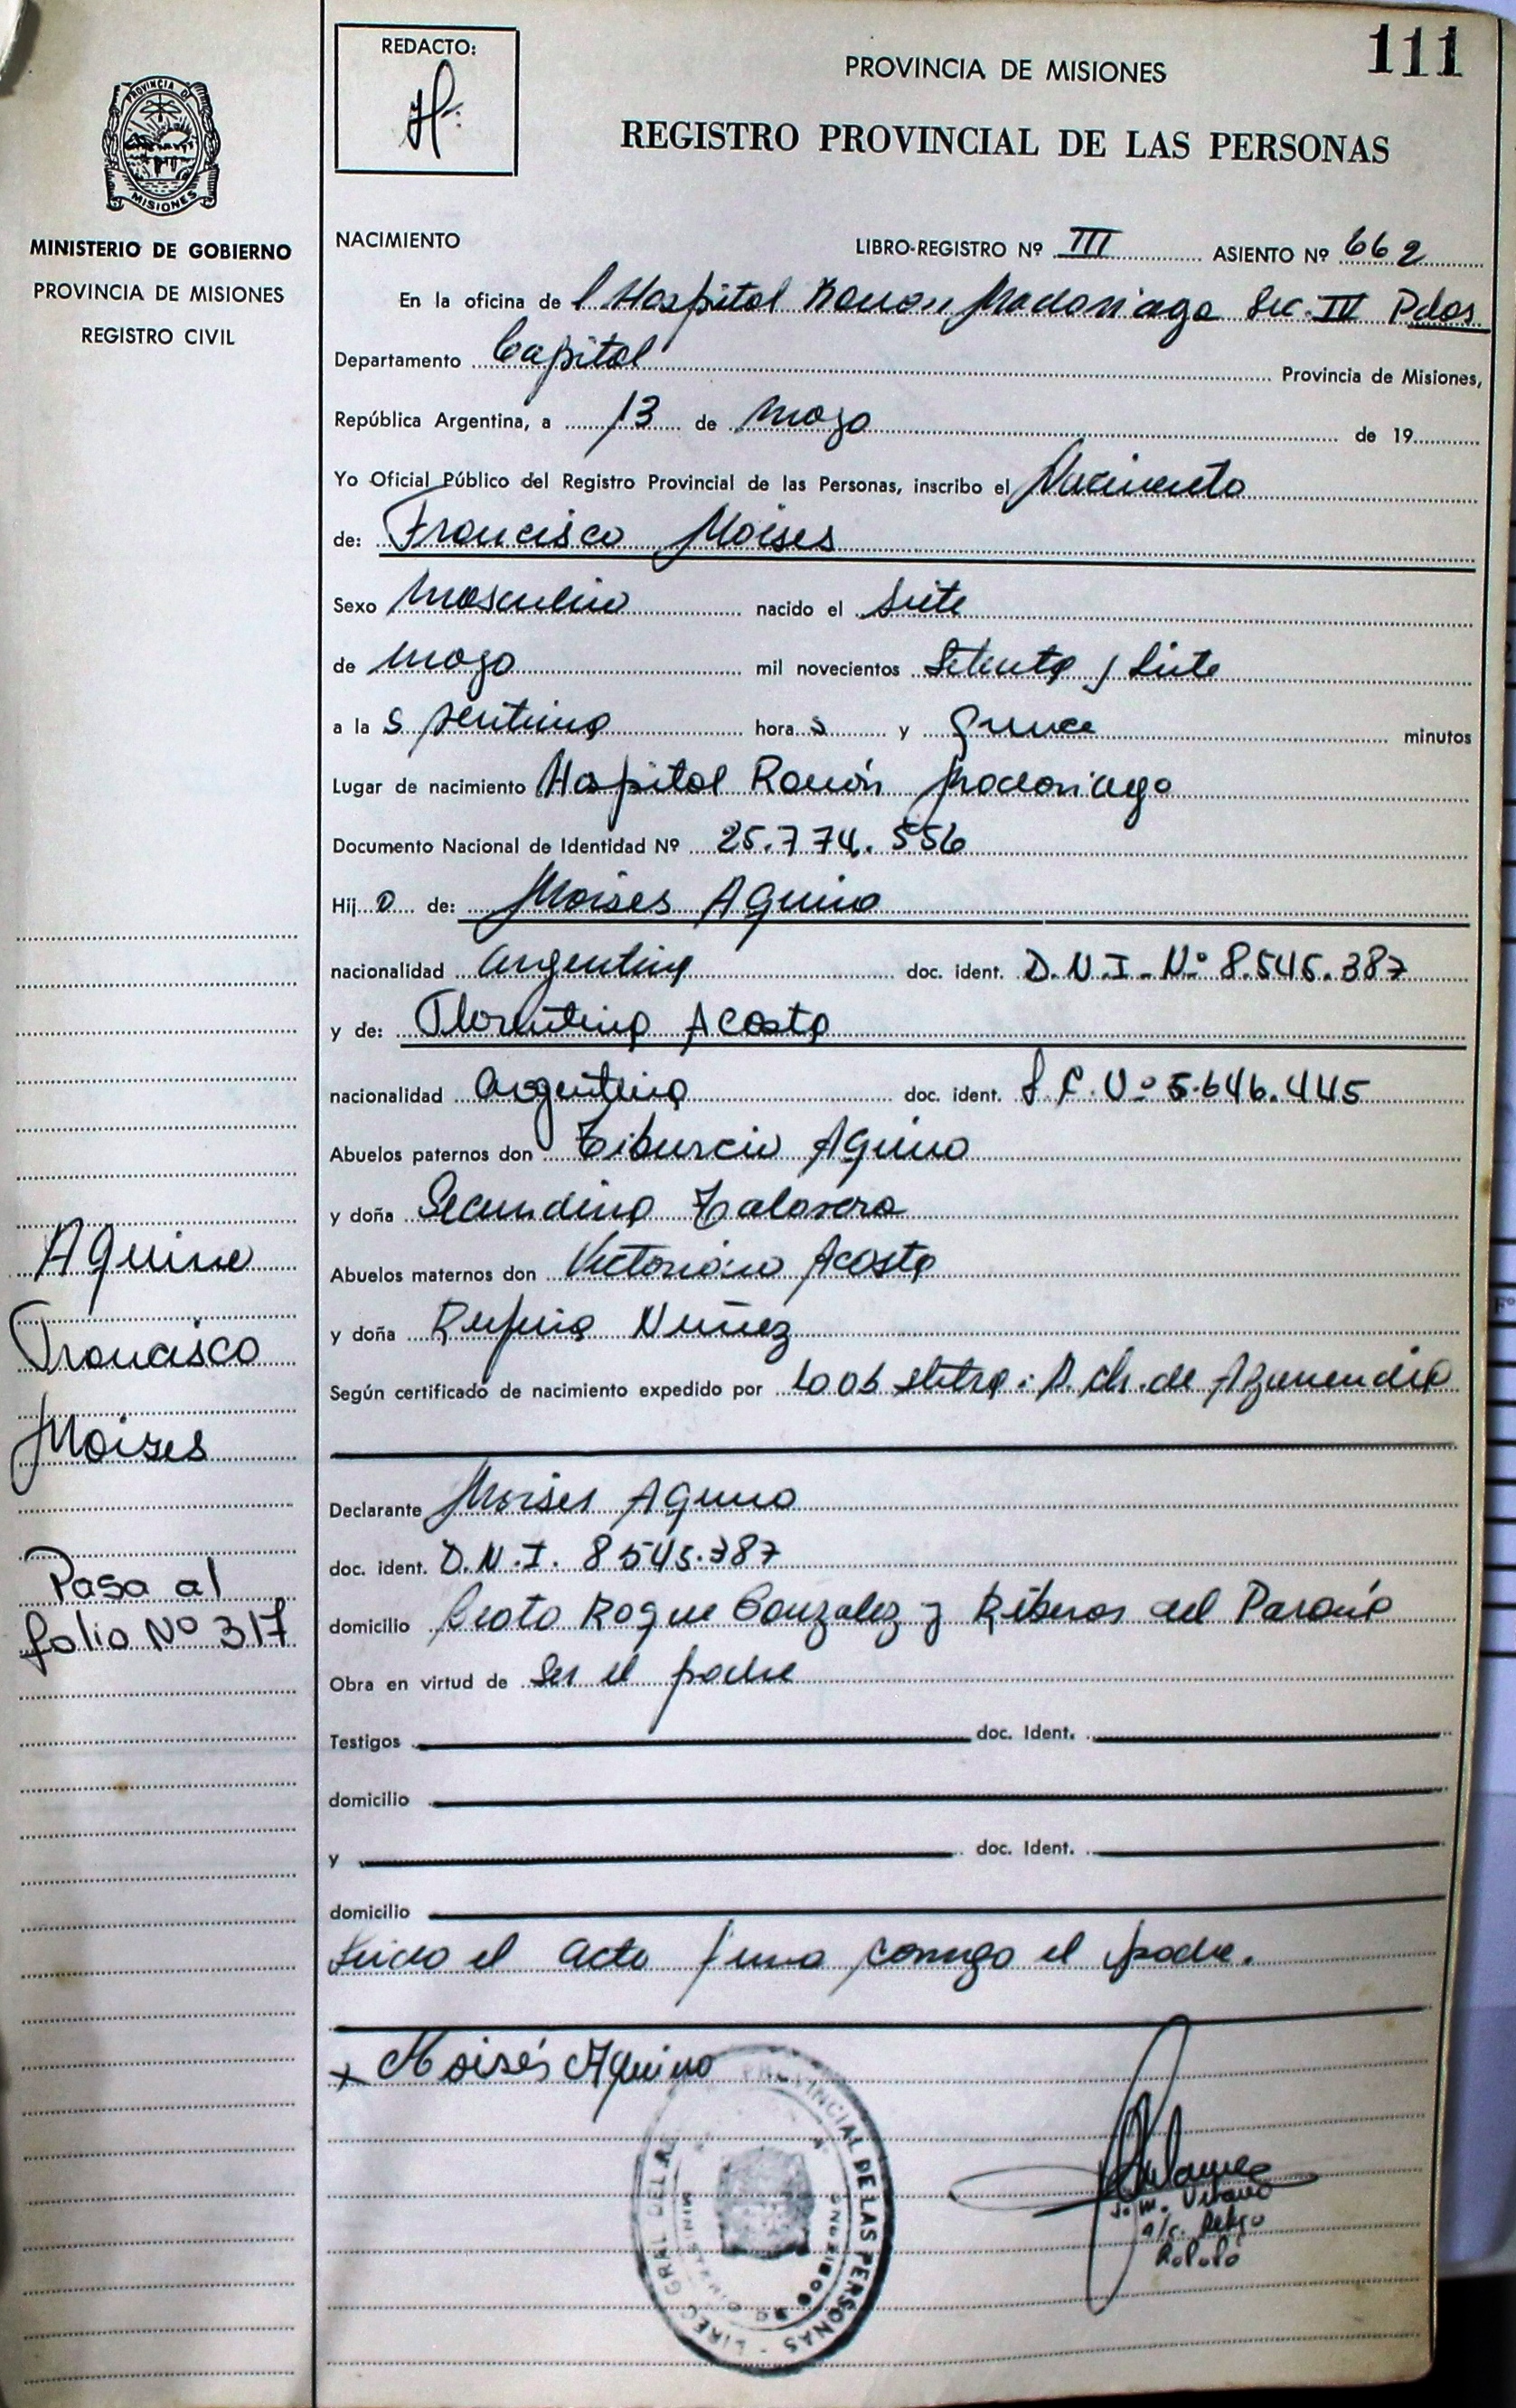 111
REDACTO:
PROVINCIA DE MISIONES
REGISTRO PROVINCIAL DE LAS PERSONAS
PROVINCIA DE
MISIONES
MINISTERIO DE GOBIERNO
PROVINCIA DE MISIONES
REGISTRO CIVIL
NACIMIENTO LIBRO-REGISTRO Nº III ASIENTO Nº 662
En la oficina de l Hospital Ramon Madariaga Sec. IV Pdas
Departamento Capital Provincia de Misiones,
República Argentina, a 13 de mayo de 19
Yo Oficial Público del Registro Provincial de las Personas, inscribo el Nacimiento
de: Francisco Moises
Sexo masculino nacido el siete
de mayo mil novecientos Setenta y Siete
a la s hora s y quince minutos
Lugar de nacimiento Hospital Ramón Madariaga
Documento Nacional de Identidad Nº 25.774.556
Hij o de: Moises Aquino
nacionalidad argentina doc. ident. D.N.I. Nº 8.545.387
y de: Florentina Acosta
nacionalidad argentina doc. ident. L.C. Nº 5.646.445
Abuelos paternos don Tiburcio Aquino
y doña Secundina Talavera
Abuelos maternos don Victoriano Acosta
y doña Rufina Nuñez
Según certificado de nacimiento expedido por la Obstetra: de
Declarante Moises Aquino
doc. ident. D.N.I. 8545.387
domicilio Beato Roque Gonzalez y Riberas del Paraná
Obra en virtud de Ser el padre
Testigos doc. Ident.
domicilio
y doc. Ident.
domicilio
Leida el acta firma conmigo el padre.
x Moisés Aquino
Aquino
Francisco
Moises
Pasa al
folio Nº 317
PROVINCIAL DE LAS PERSONAS